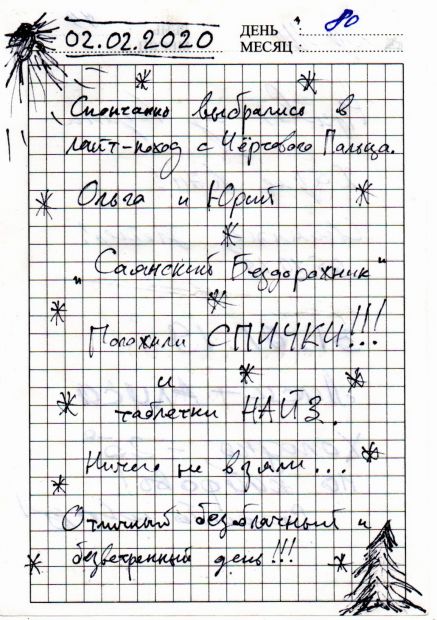 02.02.2020
ДЕНЬ : 80
МЕСЯЦ :
Спонтанно выбрались в
лайт-поход с Чёртового Пальца.
Ольга и Юрий
"Саянский Бездорожник"
Положили СПИЧКИ!!!
и
таблетки НАЙЗ.
Ничего не взяли...
Отличный безоблачный и
безветренный день!!!